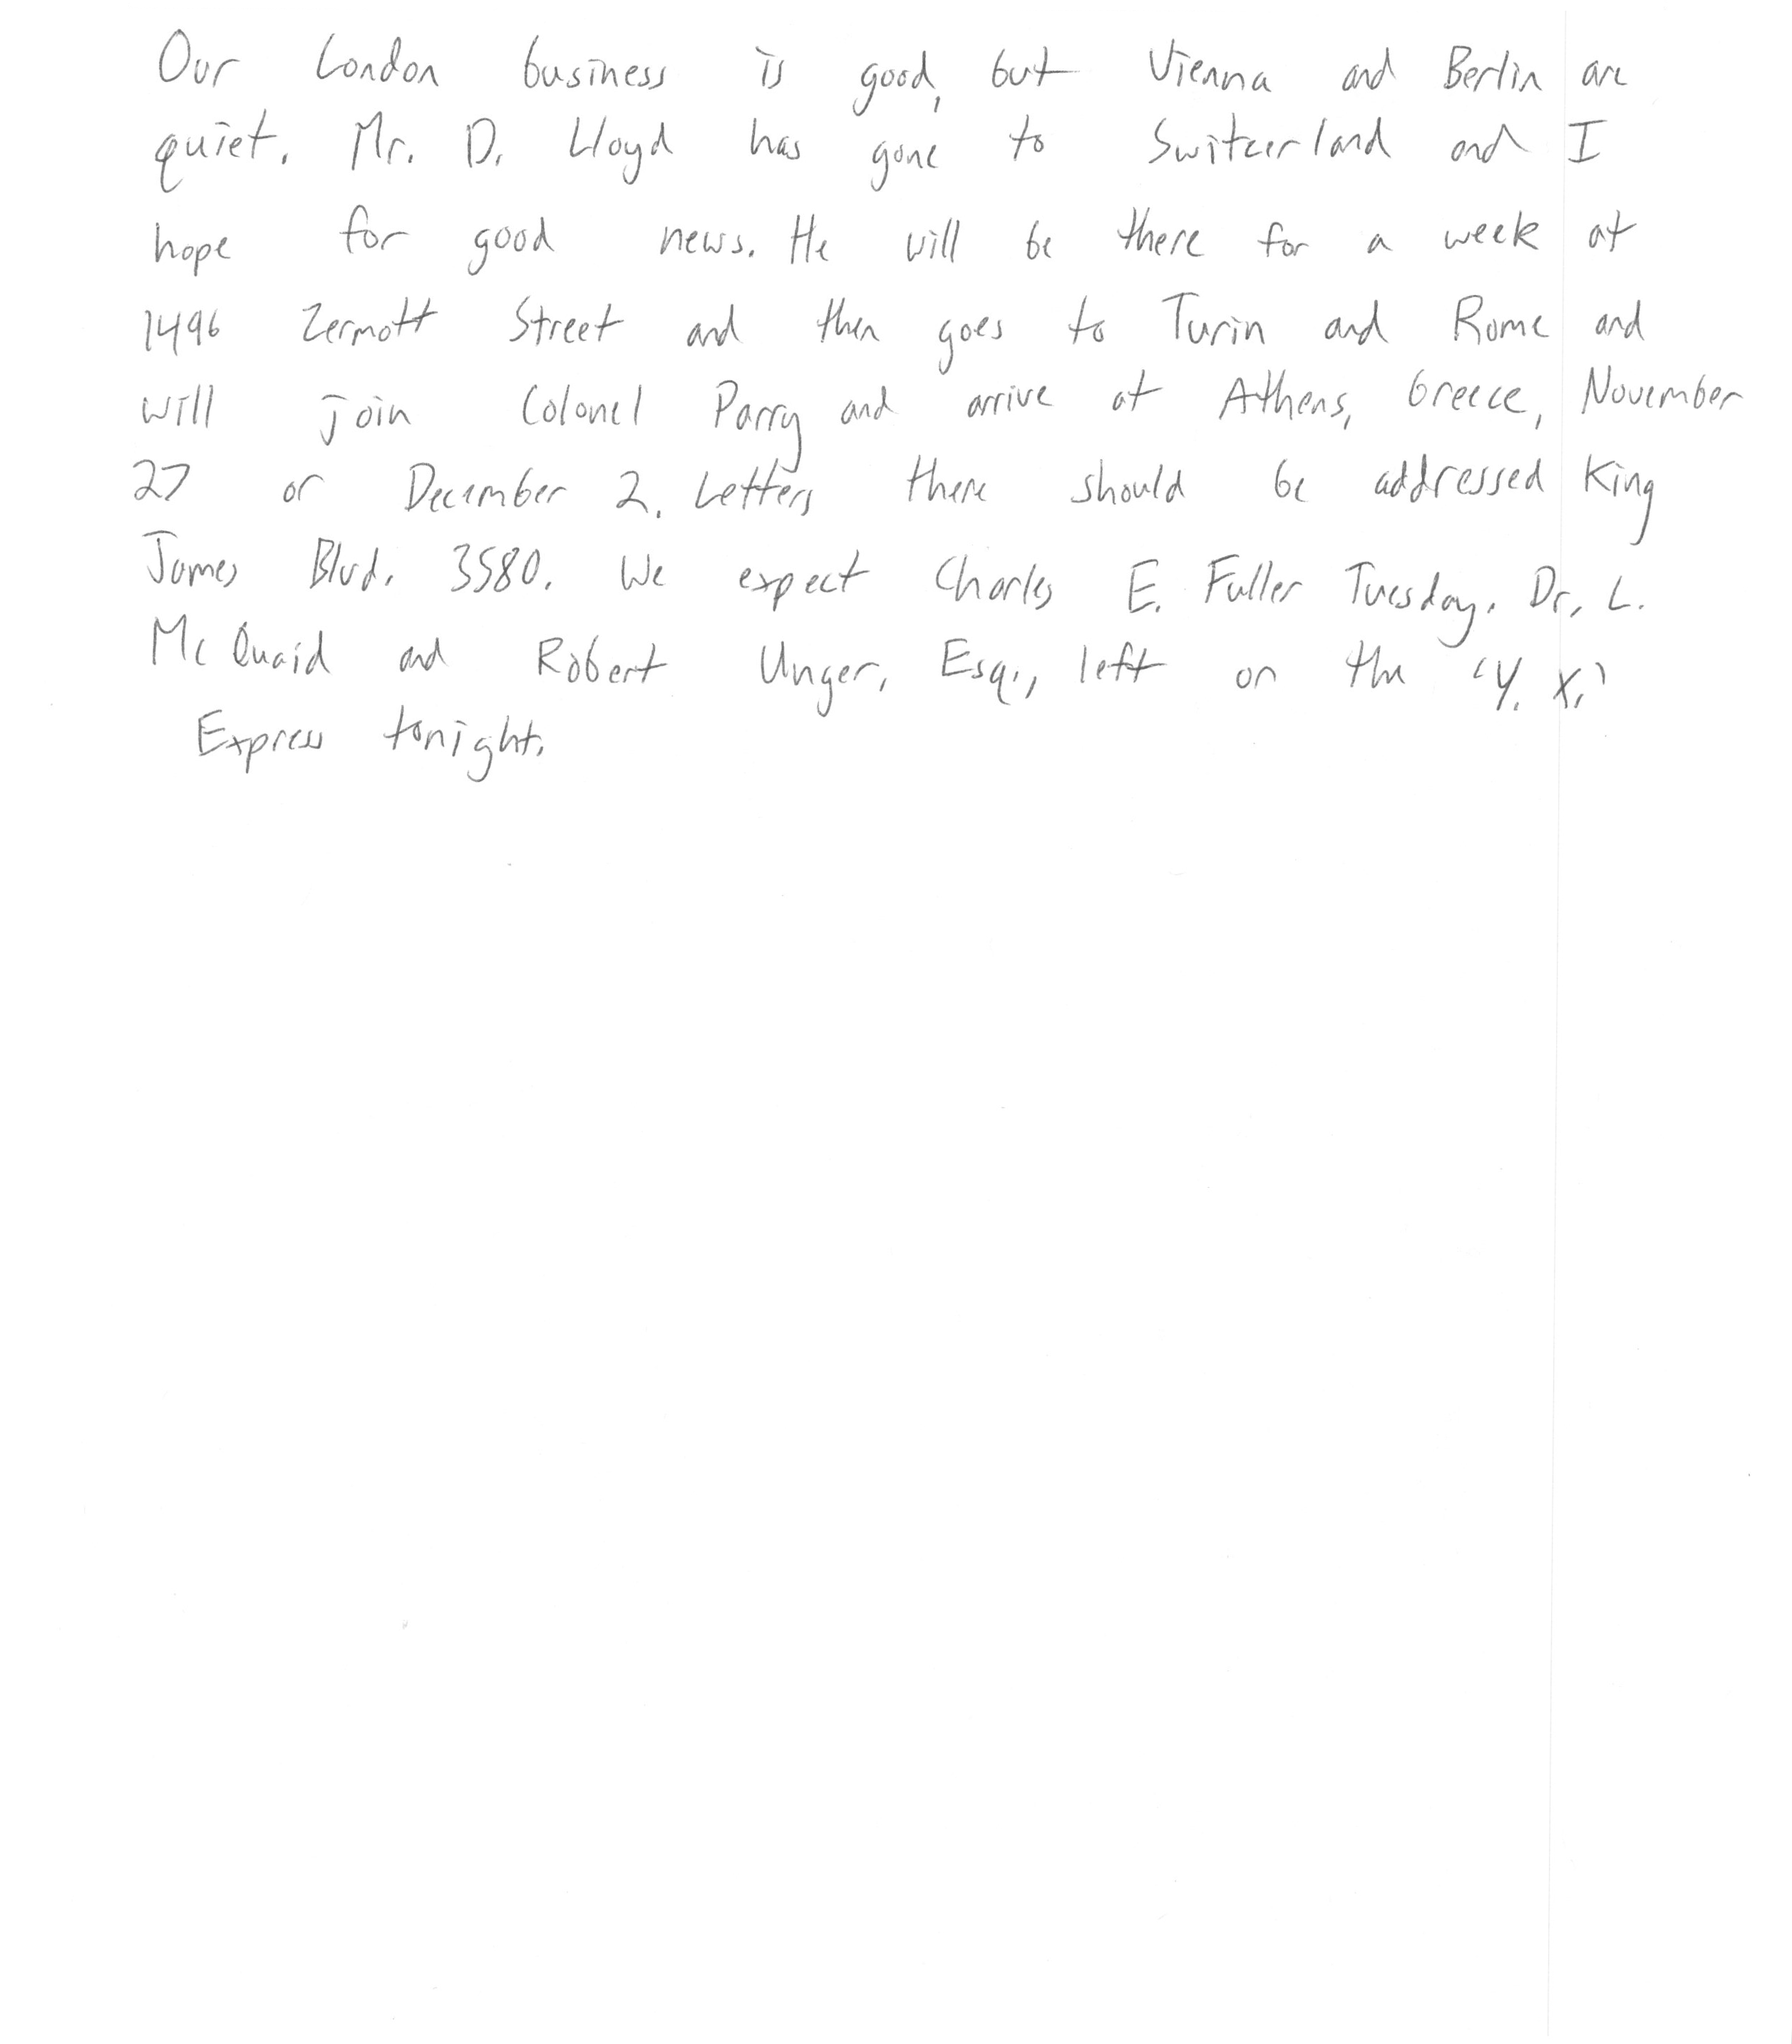 Our London business is good, but Vienna and Berlin are
quiet. Mr. D. Lloyd has gone to Switzerland and I
hope for good news. He will be there for a week at
1496 Zermott Street and then goes to Turin and Rome and
will join Colonel Parry and arrive at Athens, Greece, November
27 or December 2. Letters there should be addressed King
James Blvd. 3580. We expect Charles E. Fuller Tuesday. Dr. L.
McQuaid and Robert Unger, Esq., left on the 'Y. X.'
Express tonight.